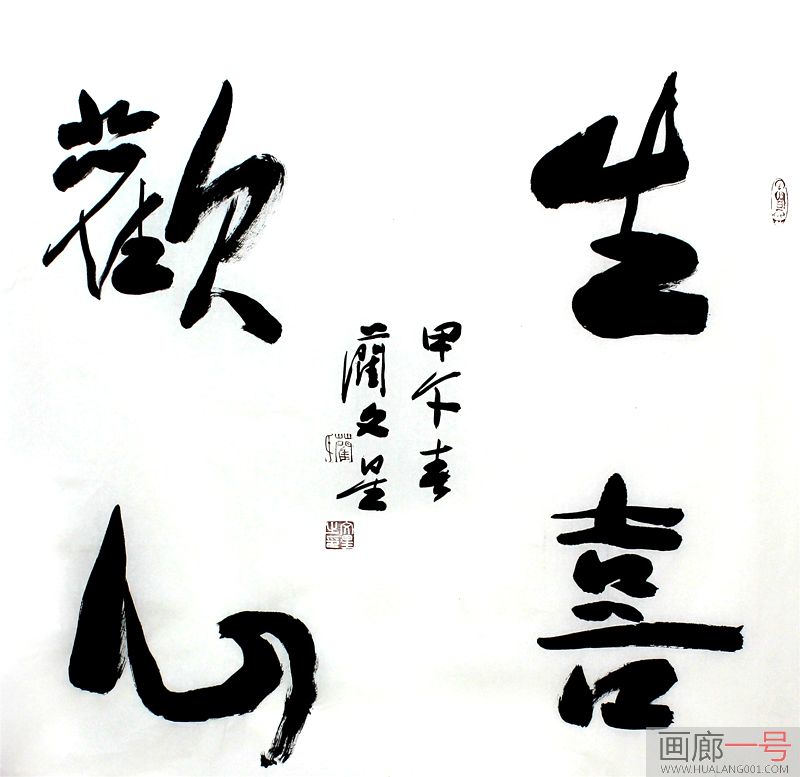 生歡
喜心
甲午春
藺文星
画廊一号
WWW.HUALANG001.COM